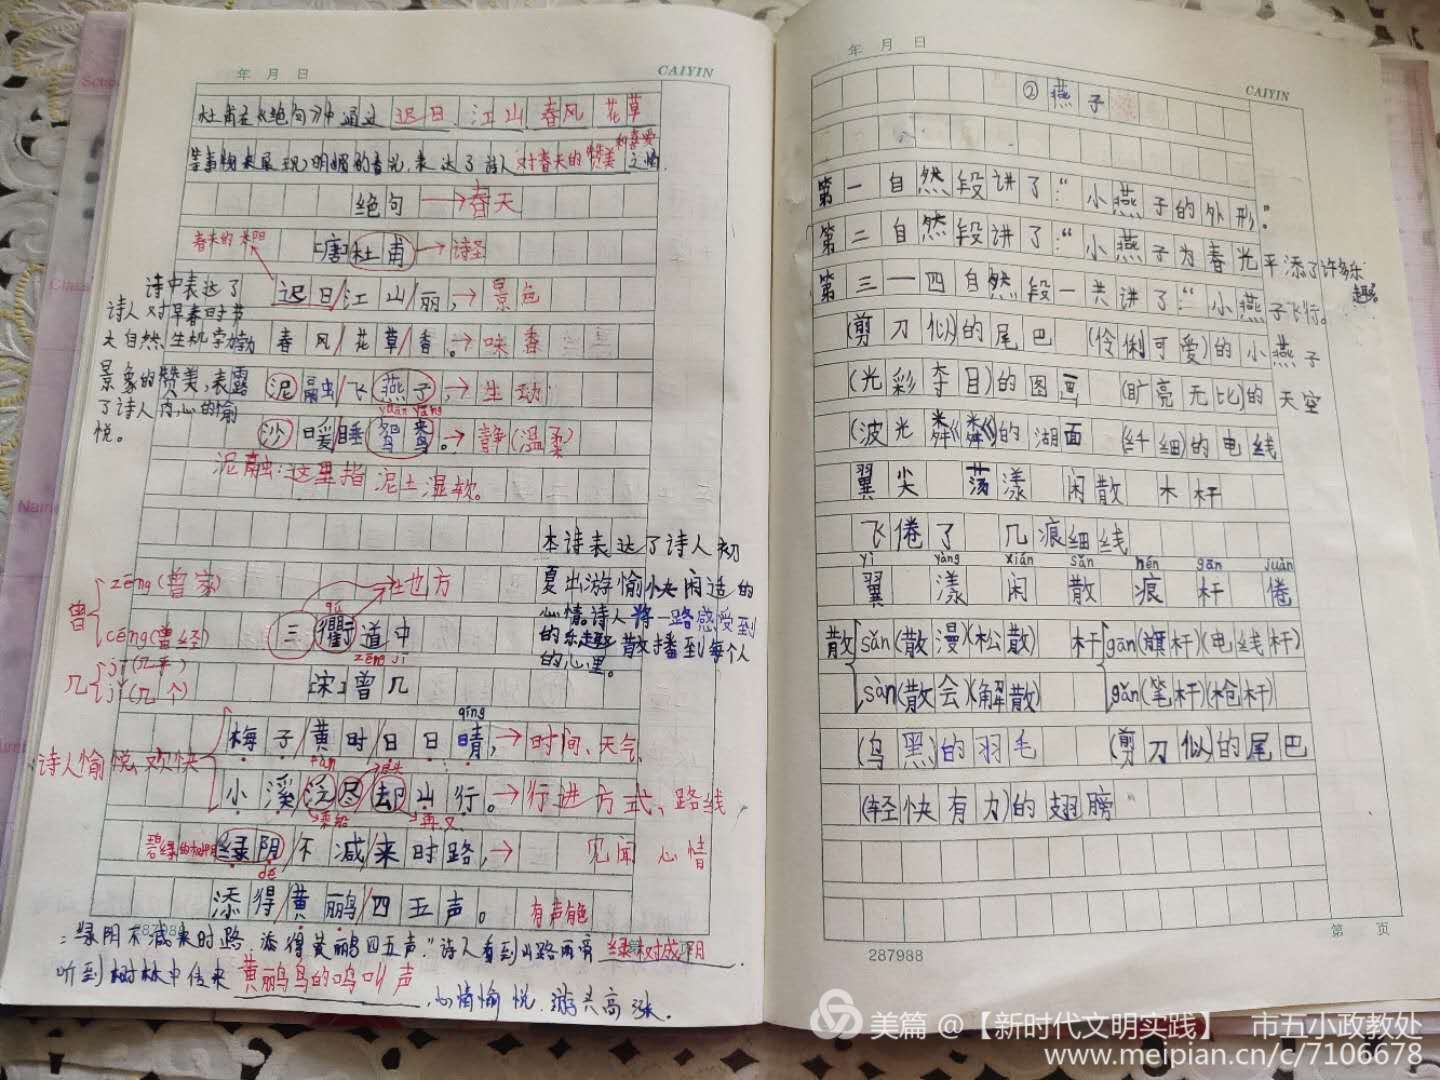 年 月 日
CAIYIN
杜甫在《绝句》中通过 迟日 江山 春风 花草
等事物来展现明媚的春光,表达了诗人对春天的赞美和喜爱之情.
绝句→春天
春天的太阳
[唐]杜甫→诗圣
迟日/江山/丽,→景色
春风/花草/香。→味香
泥融/飞燕子,→生动
yuān yāng
沙暖睡鸳鸯。→静(温柔)
诗中表达了
诗人对早春时节
大自然生机学勃勃
景象的赞美,表露
了诗人内心的愉
悦。
泥融:这里指泥土湿软。
本诗表达了诗人初
夏出游愉快闲适的
心情。诗人将一路感受到
的乐趣散播到每个人
的心里。
曾 zēng(曾家)
céng(曾经)
几 jī(几乎)
jǐ(几个)
地方
qú
三衢道中
zēng jī
[宋]曾几
qíng
梅子/黄时/日日晴,→时间、天气
诗人愉悦、欢快
小溪泛尽却山行。→行进方式、路线
乘船
再又
碧绿的树阴
绿阴/不减/来时路,→ 见闻 心情
dé
添得/黄鹂/四五声。 有声有色
"绿阴不减来时路,添得黄鹂四五声."诗人看到山路两旁 绿树成阴
听到树林中传来 黄丽鸟的鸣叫声 ,心情愉悦,游兴高涨.
年 月 日
CAIYIN
②燕子
第一自然段讲了:"小燕子的外形。
第二自然段讲了:"小燕子为春光平添了许多乐趣
第三一四自然段一共讲了:"小燕子飞行。
(剪刀似)的尾巴 (伶俐可爱)的小燕子
(光彩夺目)的图画 (旷亮无比)的天空
(波光粼粼)的湖面 (纤细)的电线
翼尖 荡漾 闲散 木杆
飞倦了 几痕细线
yì yàng xián sǎn hén gān juàn
翼 漾 闲 散 痕 杆 倦
散 sǎn(散漫)(松散) 杆 gān(旗杆)(电线杆)
sàn(散会)(解散) gǎn(笔杆)(枪杆)
(乌黑)的羽毛 (剪刀似)的尾巴
(轻快有力)的翅膀
第 页
287988
美篇 @【新时代文明实践】 市五小政教处
www.meipian.cn/c/7106678